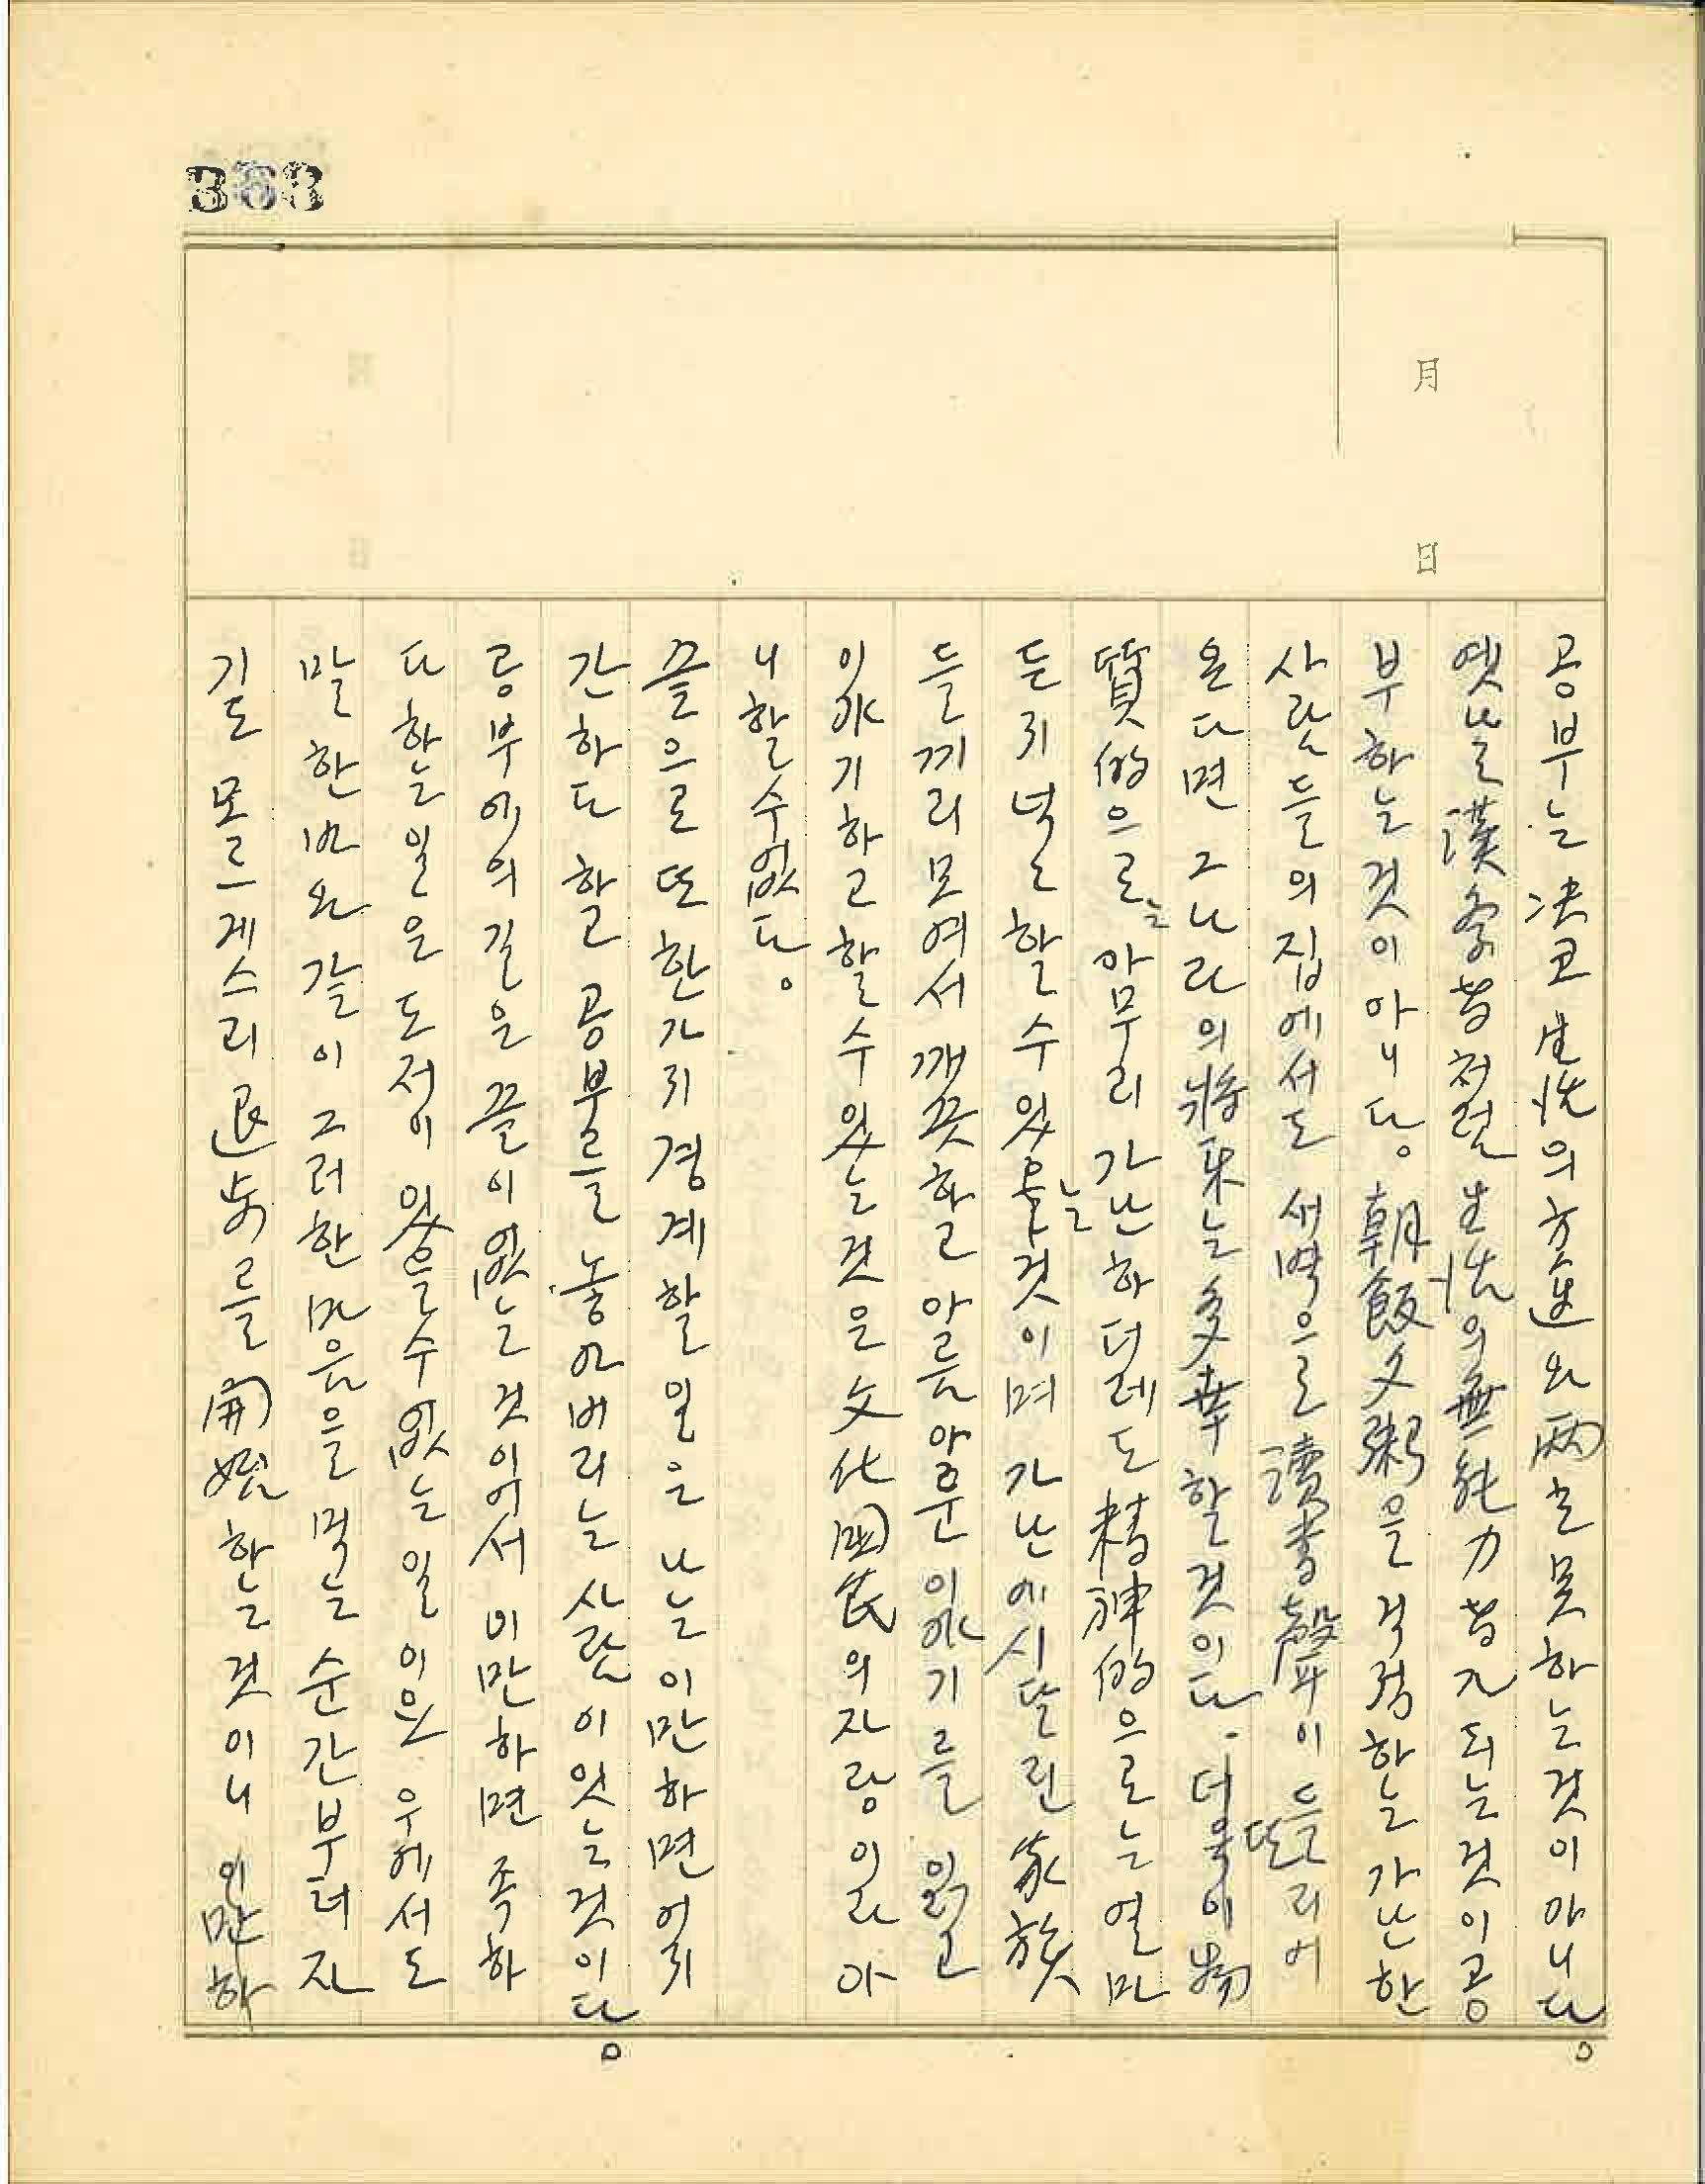 363
月
日
공부는 決코 生活의 方途와 両立못하는것이아니다。
옛날漢学者처럼 生活의無能力者가되는것이공
부하는것이아니다。朝飯夕粥을걱정하는가난한
사람들의집에서도 새벽으로讀書聲이들려
온다면그나라의將来는多幸할것이다. 더욱이物
質的으로는아무리가난하더레도精神的으로는열마
든지넉넉할수있는것이며가난에시달린家族
들끼리모여서깨끗하고아름아훈이애기를읽고
이애기하고할수있는것은文化国民의자랑일아
니할수없다。
끝으로또한가지경계할일은나는이만하면어지
간하다하고공부를놓아버리는사람이있는것이다。
공부에의길은끝이없는것이어서이만하면족하
다하는일은도저이있을수없는일이오 우에서도
말한바와같이그러한마음을먹는순간부터자
기도모르게스리退步를開始하는것이니이만하